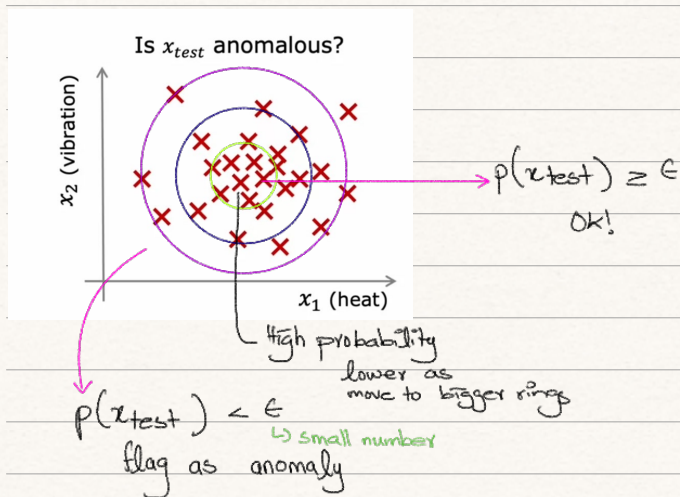 Is x_test anomalous?
x₂ (vibration)
x₁ (heat)
p(xtest) ≥ ε
Ok!
High probability
lower as
move to bigger rings
p(xtest) < ε
↳ small number
flag as anomaly